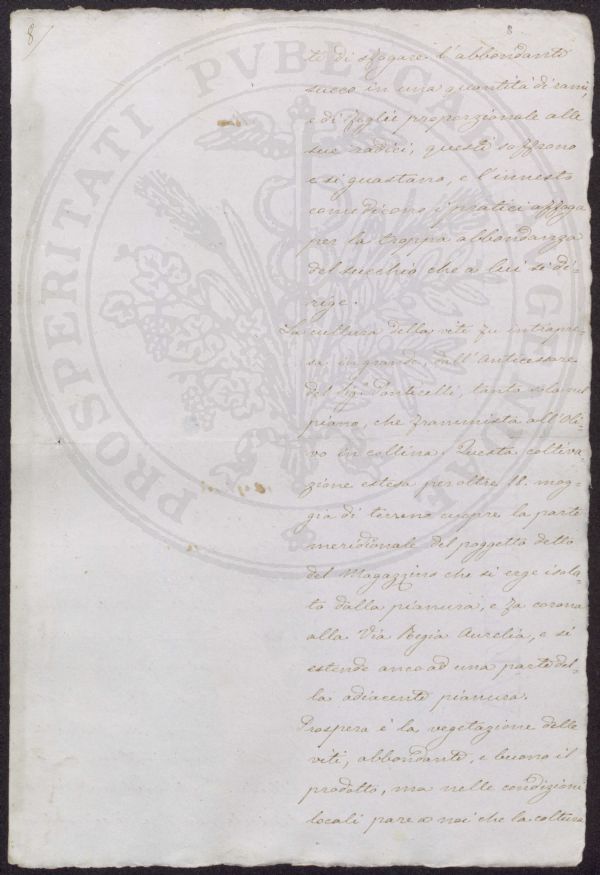 8/
8
te di sfogare l'abbondante
succo in una quantità di rami,
e di foglie proporzionale alle
sue radici, questi soffrono
e si guastano, e l'innesto
come dicono i pratici affoga
per la troppa abbondanza
del succhio che a lui si di-
rige.
La cultura della vite fu intrapre-
sa in grande, dall'Antecessore
del Sig. Ponticelli, tanto sola nel
piano, che frammista all'Oli-
vo in collina. Questa coltiva-
zione estesa per oltre 11. mog-
gia di terreno cuopre la parte
meridionale del poggetto detto
del Magazzino che si erge isola-
to dalla pianura, e fa corona
alla Via Regia Aurelia, e si
estende anco ad una parte del-
la adiacente pianura.
Prospera è la vegetazione delle
viti, abbondante, e buono il
prodotto, ma nelle condizioni
locali pare a noi che la coltura
PROSPERITATI PUBLICAE AUGENDAE